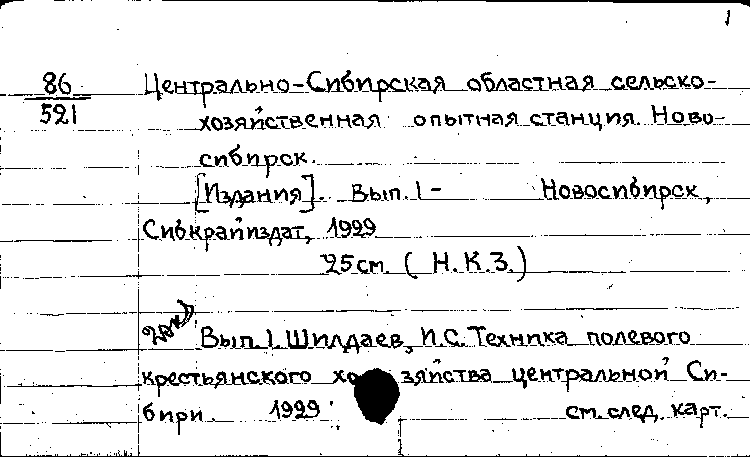 1
86 Центрально-Сибирская областная сельско-
521 хозяйственная опытная станция. Ново-
сибирск.
[Издания]. Вып. 1 - Новосибирск,
Сибкрайиздат, 1929
25 см. (Н.К.З.)
Вып. 1. Шилдаев, И.С. Техника полевого
крестьянского хозяйства центральной Си-
бири. 1929. см. след. карт.